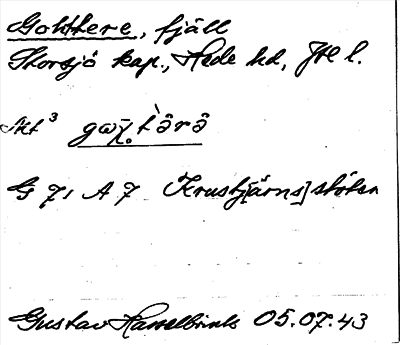 Gohthere, fjäll
Storsjö kap., Hede hd, Jtl l.
Akt³ gωχ̣t̀ərə̂
G 71 A 7 Krustj[ärns]stöten
Gustav Hasselbrink 05.07.43